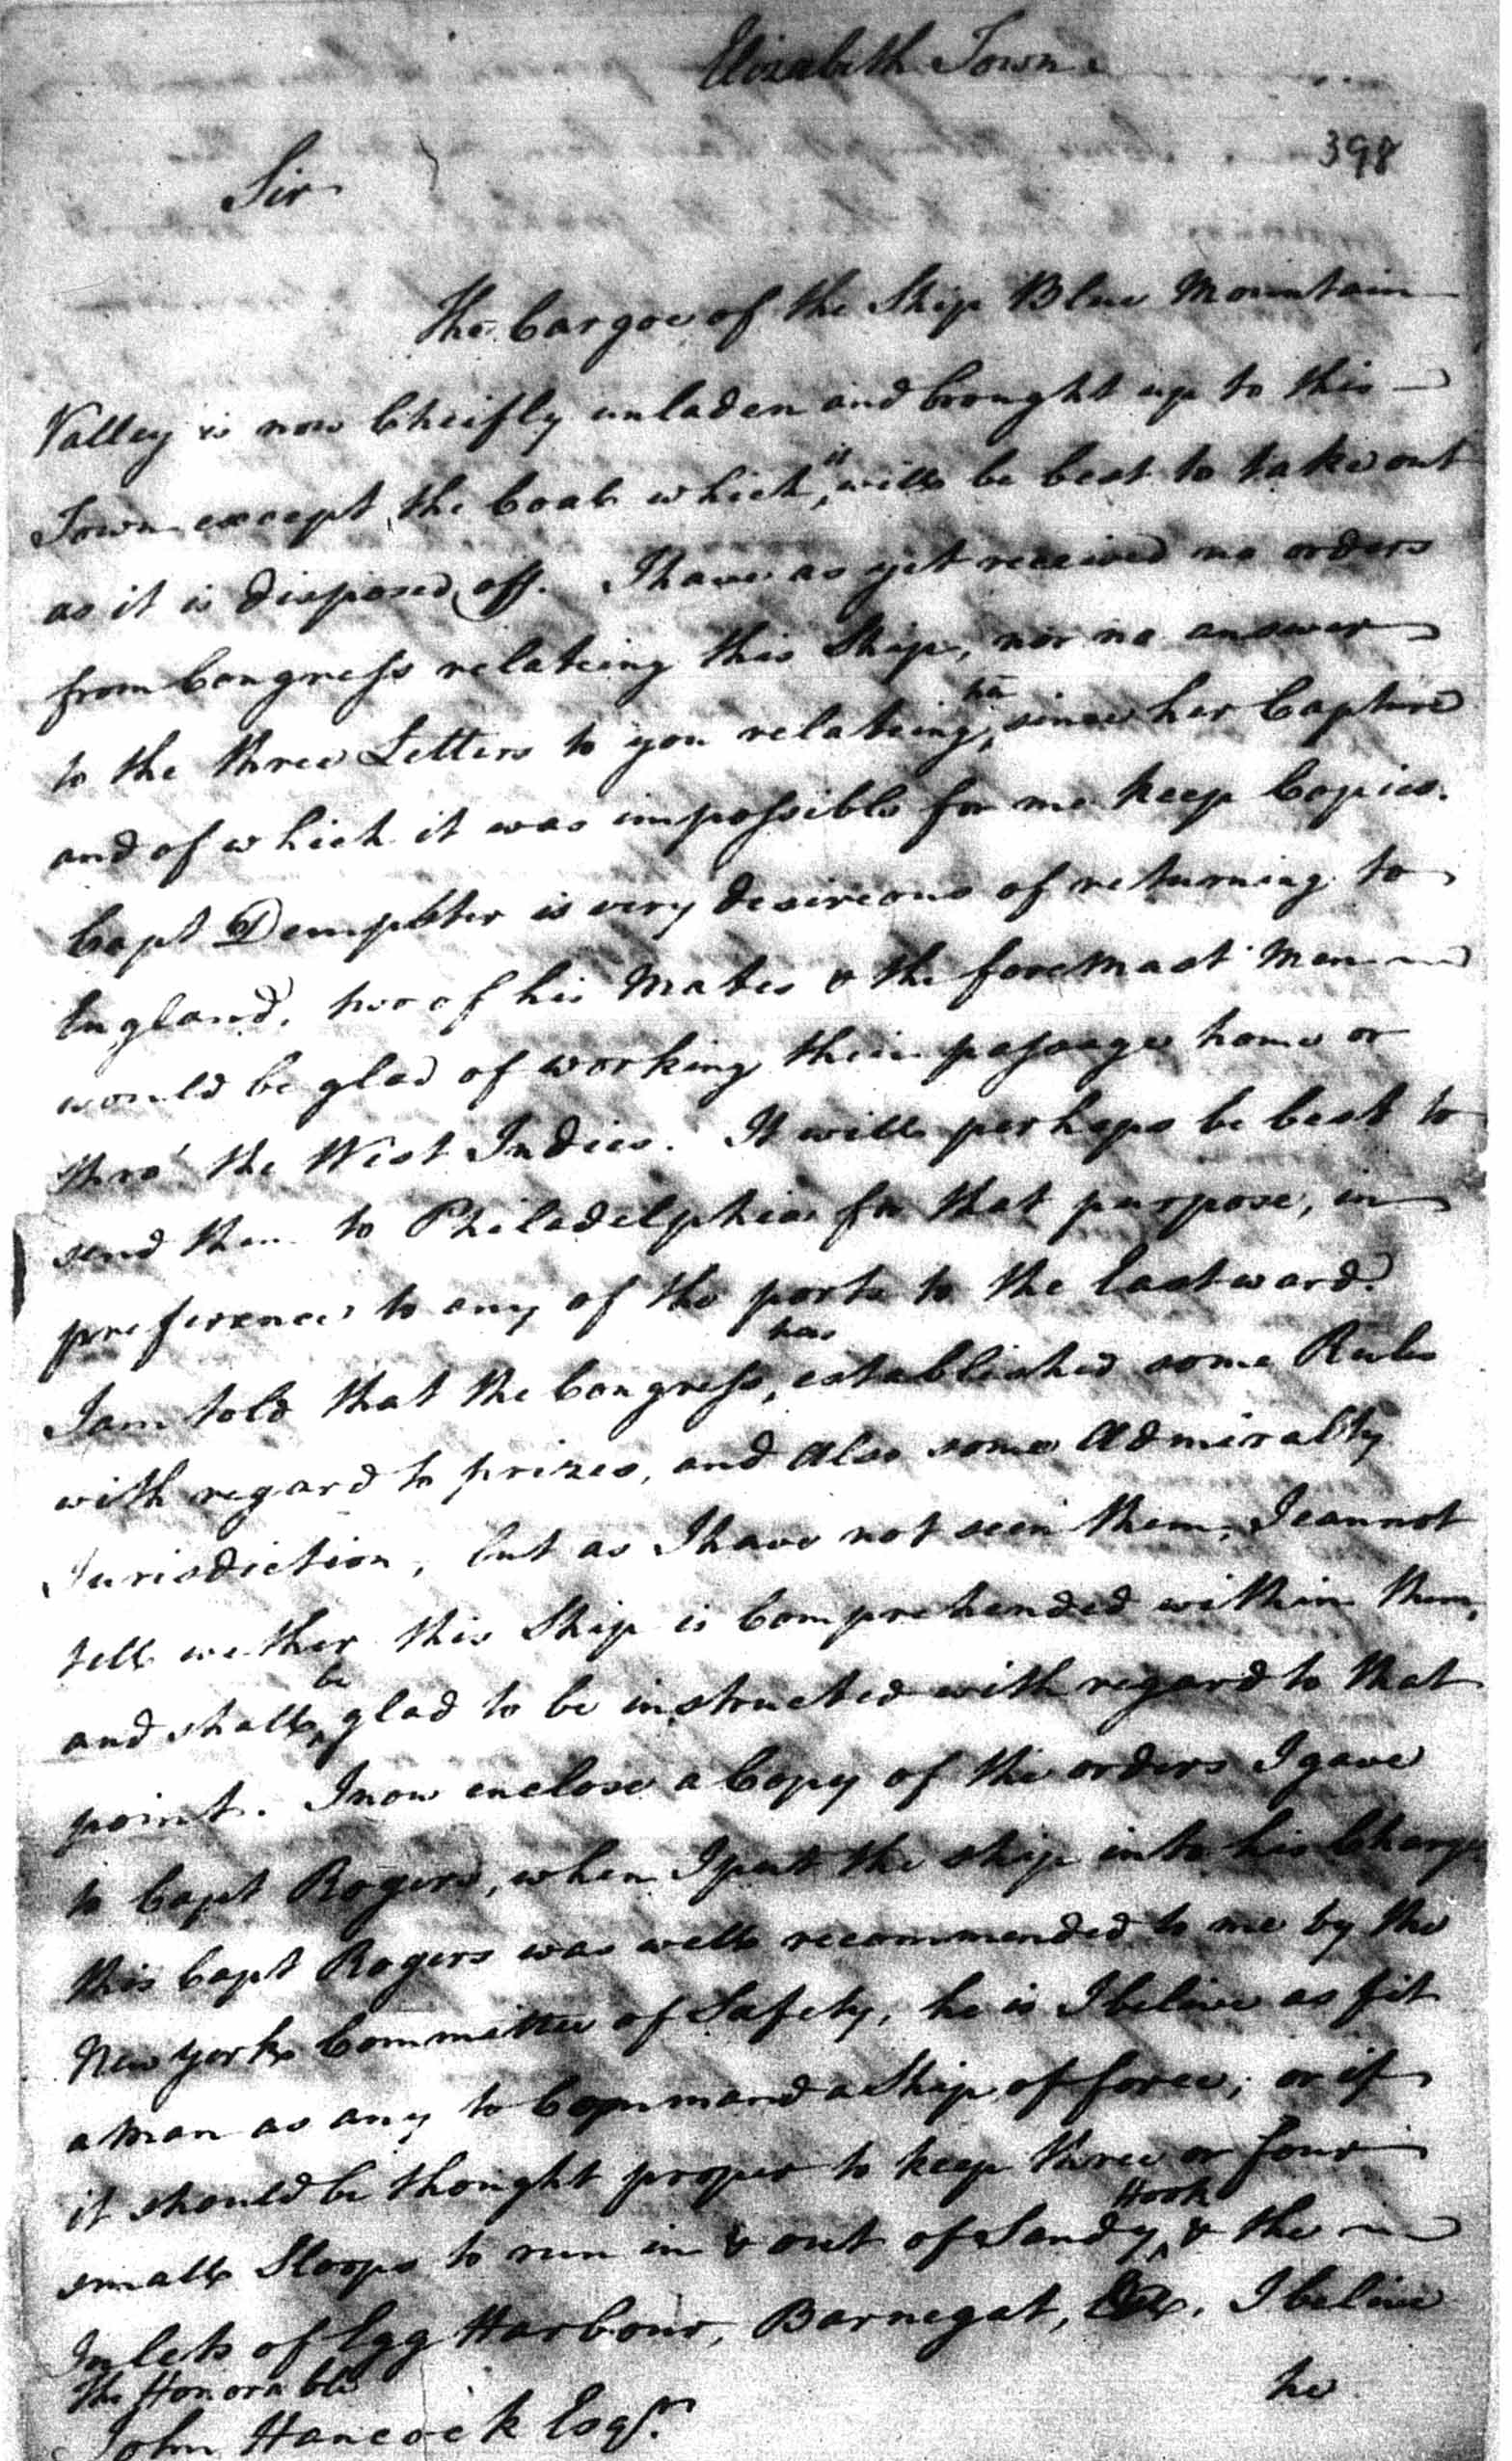 Elizabeth Town
398
Sir
The Cargoe of the Ship Blue Mountain
Valley is now Cheifly unladen and brought up to this
Town except the Coal which it will be best to take out
as it is disposed off. I have as yet received no orders
from Congress relateing this Ship, nor no answer
to the three Letters to you relateing her, since her Capture
and of which it was impossible for me keep Copies.
Capt Dempster is very desireous of returning to
England, two of his Mates & the foremast Men
would be glad of working their passage home or
thro' the West Indies. It will perhaps be best to
send them to Philadelphia for that purpose, in
preference to any of the ports to the Eastward.
I am told that the Congress has established some Rules
with regard to prizes, and also some Admiralty
Jurisdiction, but as I have not seen them, I cannot
tell wether this Ship is Comprehended within them,
and shall be glad to be instructed with regard to that
point. I now enclose a Copy of the orders I gave
to Capt Rogers, when I put the ship into his Charge
this Capt Rogers was well recommended to me by the
New York Committee of Safety, he is I believe as fit
a Man as any to Command a Ship of force, or if
it should be thought proper to keep three or four
small Sloops to run in & out of Sandy Hook & the
Inlets of Egg Harbour, Barnegat, &c. I believe
he
The Honorable
John Hancock Esqr.